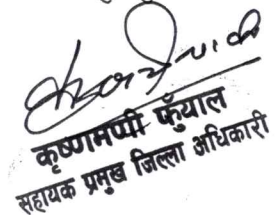 कृष्णमणी फुँयाल
सहायक प्रमुख जिल्ला अधिकारी